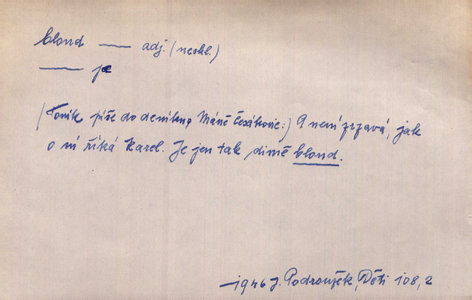 blond — adj. (neskl.)
— je
(Toník píše do deníku o Máně Čezákovic:) A není zrzavá, jak
o ní říká Karel. Je jen tak divně blond.
—1946 J. Podroužek, Děti 108,2